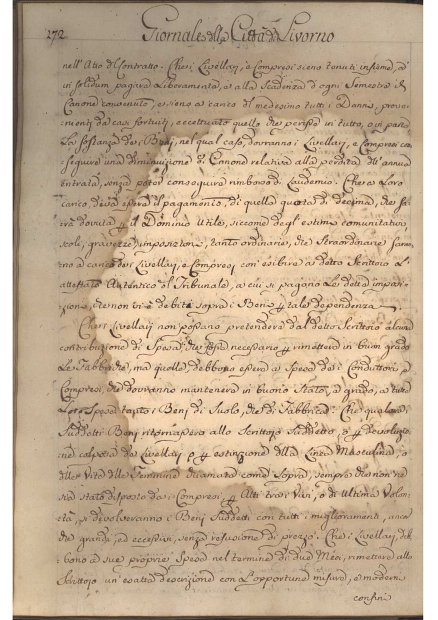 272 Giornale della Città di Livorno
nell'Atto del Contratto. Che i Livellarj, e Compresi sieno tenuti insieme, ed
in solidum pagare liberamente, e alla scadenza d'ogni Semestre il
Canone convenuto, e sieno a carico del medesimo tutti i Danni, prove-
nienti da casi fortuiti, eccettuato quello che perisse in tutto, o in parte
la sostanza dei Beni, nel qual caso dovranno i Livellarj, e Compresi con-
seguire una diminuzione di Canone relativa alla perdita dell'annua
entrata, senza poter conseguire rimborso di Laudemio. Che a Loro
carico, deva essere il pagamento, di quella quota di decima, che sa-
rà dovuta il Dominio Utile, siccome degl'estimi comunitativi,
scoli, gravezze, imposizioni, tanto ordinarie, che straordinarie saran-
no a carico dei Livellarj, e Compresi con esibire a detto Scrittoio l'
attestato Autentico al Tribunale, a cui si pagano le dette impo-
zioni, che non vi è debito sopra i Beni tale dependenza
Che i Livellarj non possano pretendere dal detto Scrittoio alcuna
contribuzione di Spesa, che fosse necessario rimettere in buon grado
le Fabbriche, ma quelle debbono essere a Spesa dei Conduttori, e
Compresi, che dovranno mantenere in buono Stato, e grado, a tutte
Loro Spese tanto i Beni di Suolo, che di Fabbrica. Che qualora i
Suddetti Beni ritornassero allo Scrittoio Suddetto, o devoluzio-
ne causata da Livellarj o estinzione della Linea Mascolina, o
delle Vite delle Femmine chiamate come Sopra, sempre che non ne
sia stato disposto dai Compresi Atti tra i Vivi, o di Ultima Volon-
tà, si devolveranno i Beni Suddetti con tutti i miglioramenti, ancor
che grandi, ed eccessivi, senza refusione di prezzo. Che i Livellarj deb-
bono a sue proprie Spese nel termine di due Mesi, rimettere allo
Scrittoio un'esatta descrizione con l'opportune misure, e moderni
confini